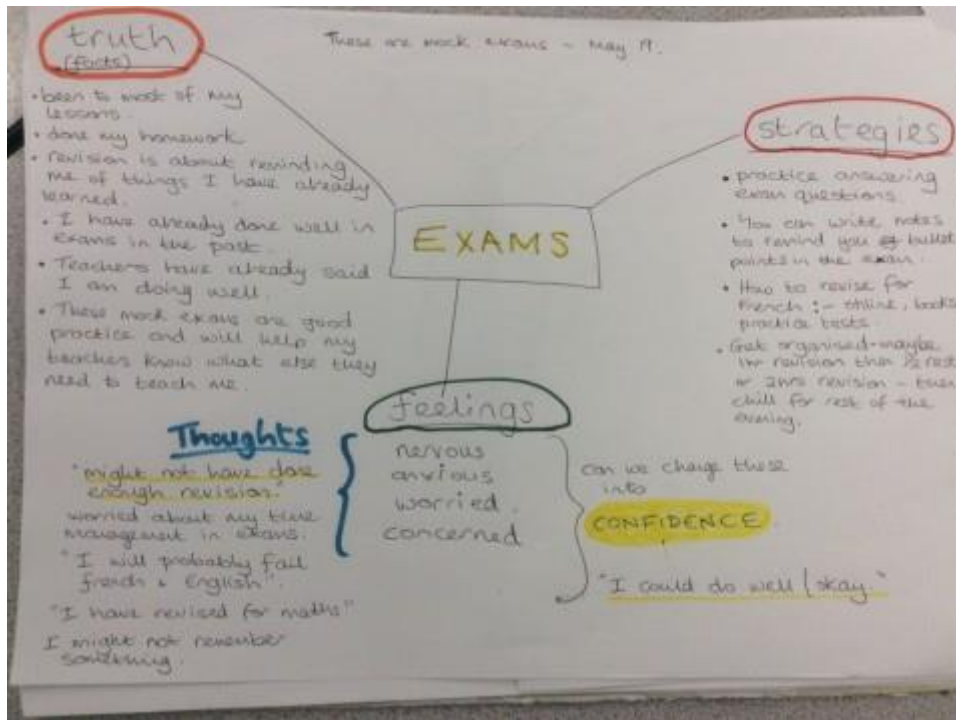 These are mock exams - May 19.
truth
(facts)
• been to most of my
lessons.
• done my homework
• revision is about reminding
me of things I have already
learned.
• I have already done well in
exams in the past.
• Teachers have already said
I am doing well.
• These mock exams are good
practice and will help my
teachers know what else they
need to teach me.
EXAMS
strategies
• practice answering
exam questions.
• You can write notes
to remind you of bullet
points in the exam.
• How to revise for
French :- online, books
practice tests
• Get organised - maybe
1hr revision then 1/2 rest
or 2hrs revision - then
chill for rest of the
evening.
feelings
nervous
anxious
worried.
concerned
Thoughts
"might not have done
enough revision."
worried about my time
management in exams.
"I will probably fail
french & English".
"I have revised for maths!"
I might not remember
something.
can we change these
into
CONFIDENCE.
"I could do well / okay."